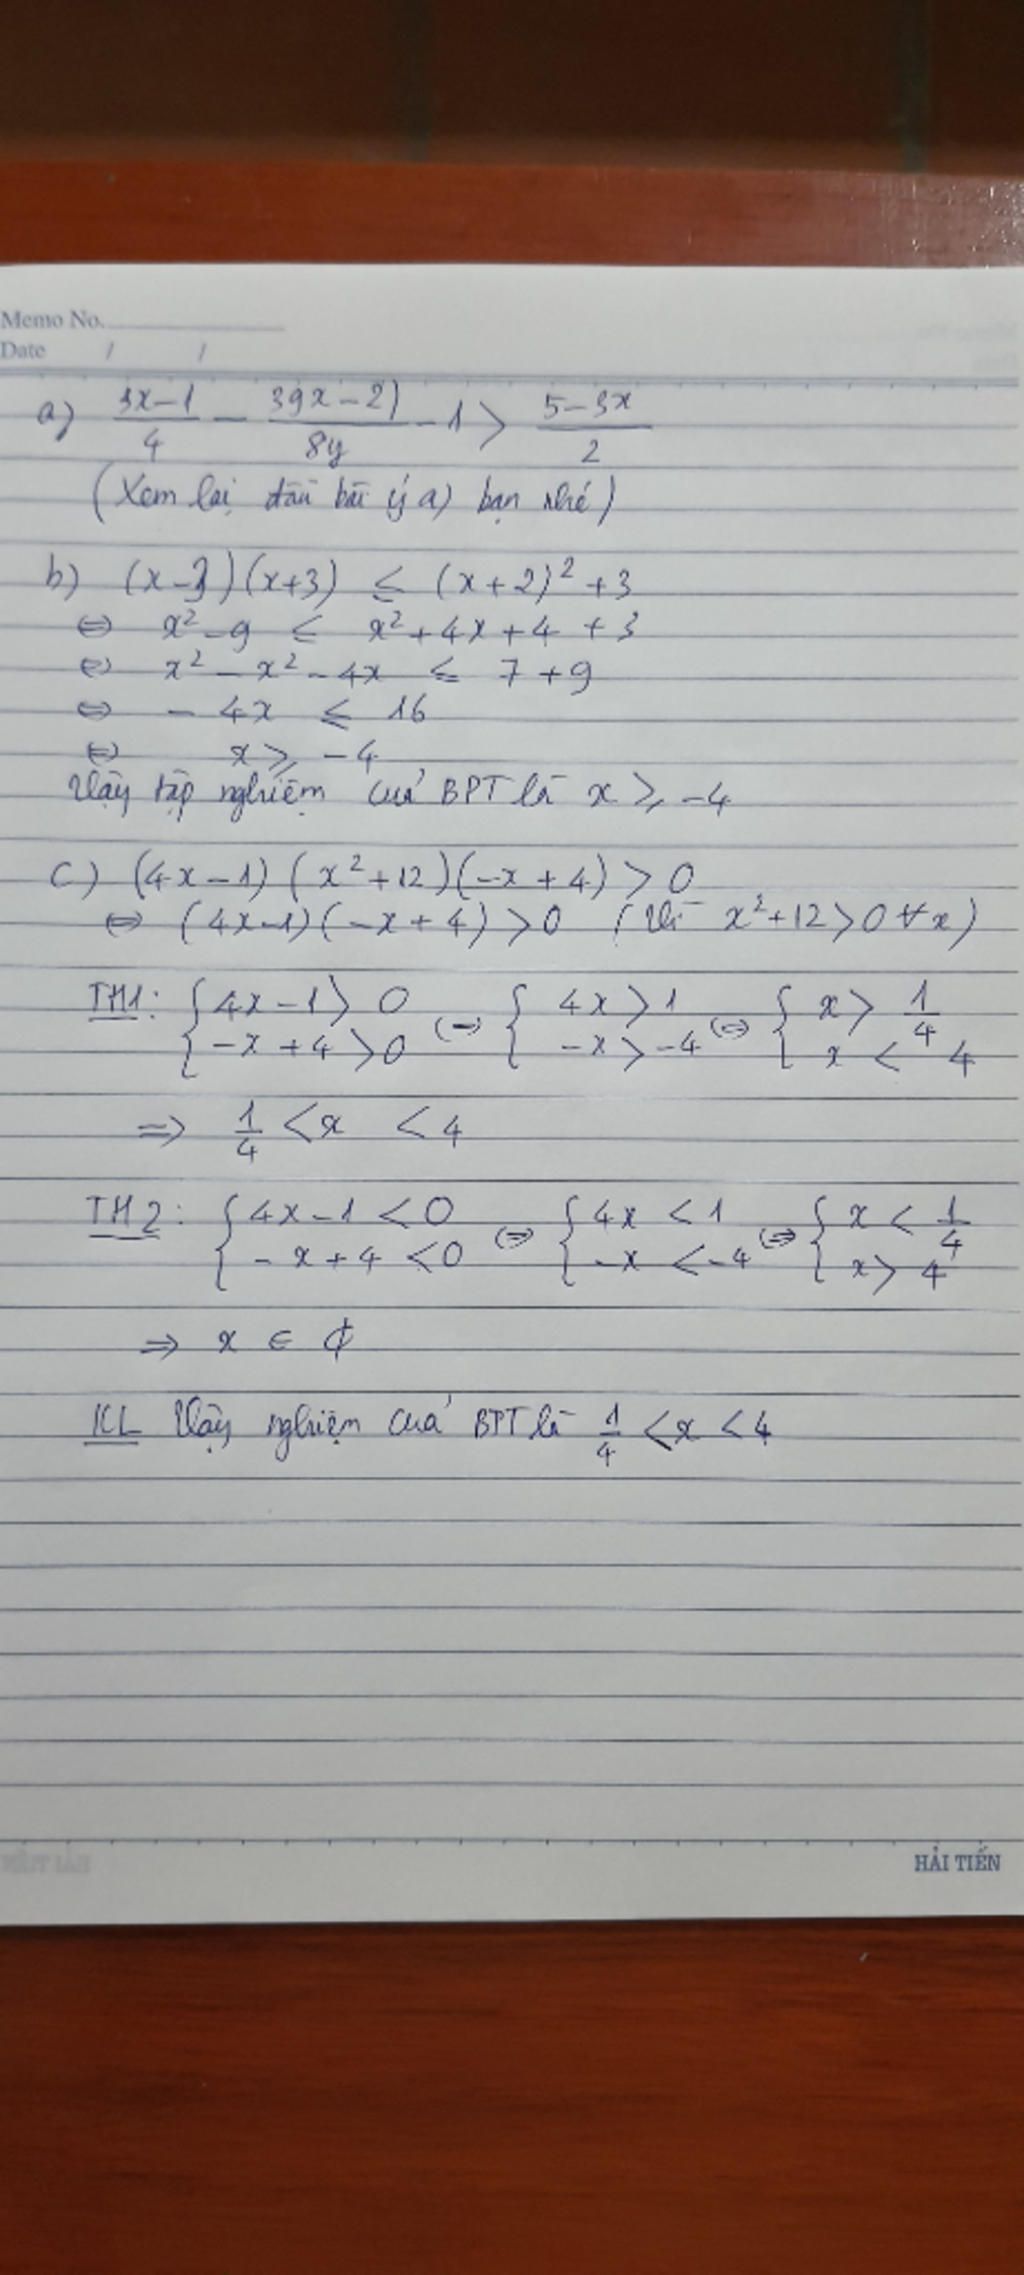 Memo No.
Date / /
a) \frac{3x-1}{4} - \frac{39x-2)}{8y} - 1 > \frac{5-3x}{2}
(Xem lại đầu bài ý a) bạn nhé)
b) (x-3)(x+3) ≤ (x+2)² + 3
⇔ x² - 9 ≤ x² + 4x + 4 + 3
⇔ x² - x² - 4x ≤ 7 + 9
⇔ - 4x ≤ 16
⇔ x ≥ -4
Vậy tập nghiệm của BPT là x ≥ -4
c) (4x-1)(x²+12)(-x+4) > 0
⇔ (4x-1)(-x+4) > 0 (Vì x²+12 > 0 ∀x)
TH1: { 4x-1 > 0 ; -x+4 > 0 ⇔ { 4x > 1 ; -x > -4 ⇔ { x > \frac{1}{4} ; x < 4
⇒ \frac{1}{4} < x < 4
TH2: { 4x-1 < 0 ; -x+4 < 0 ⇔ { 4x < 1 ; -x < -4 ⇔ { x < \frac{1}{4} ; x > 4
⇒ x ∈ ∅
KL Vậy nghiệm của BPT là \frac{1}{4} < x < 4
HẢI TIẾN